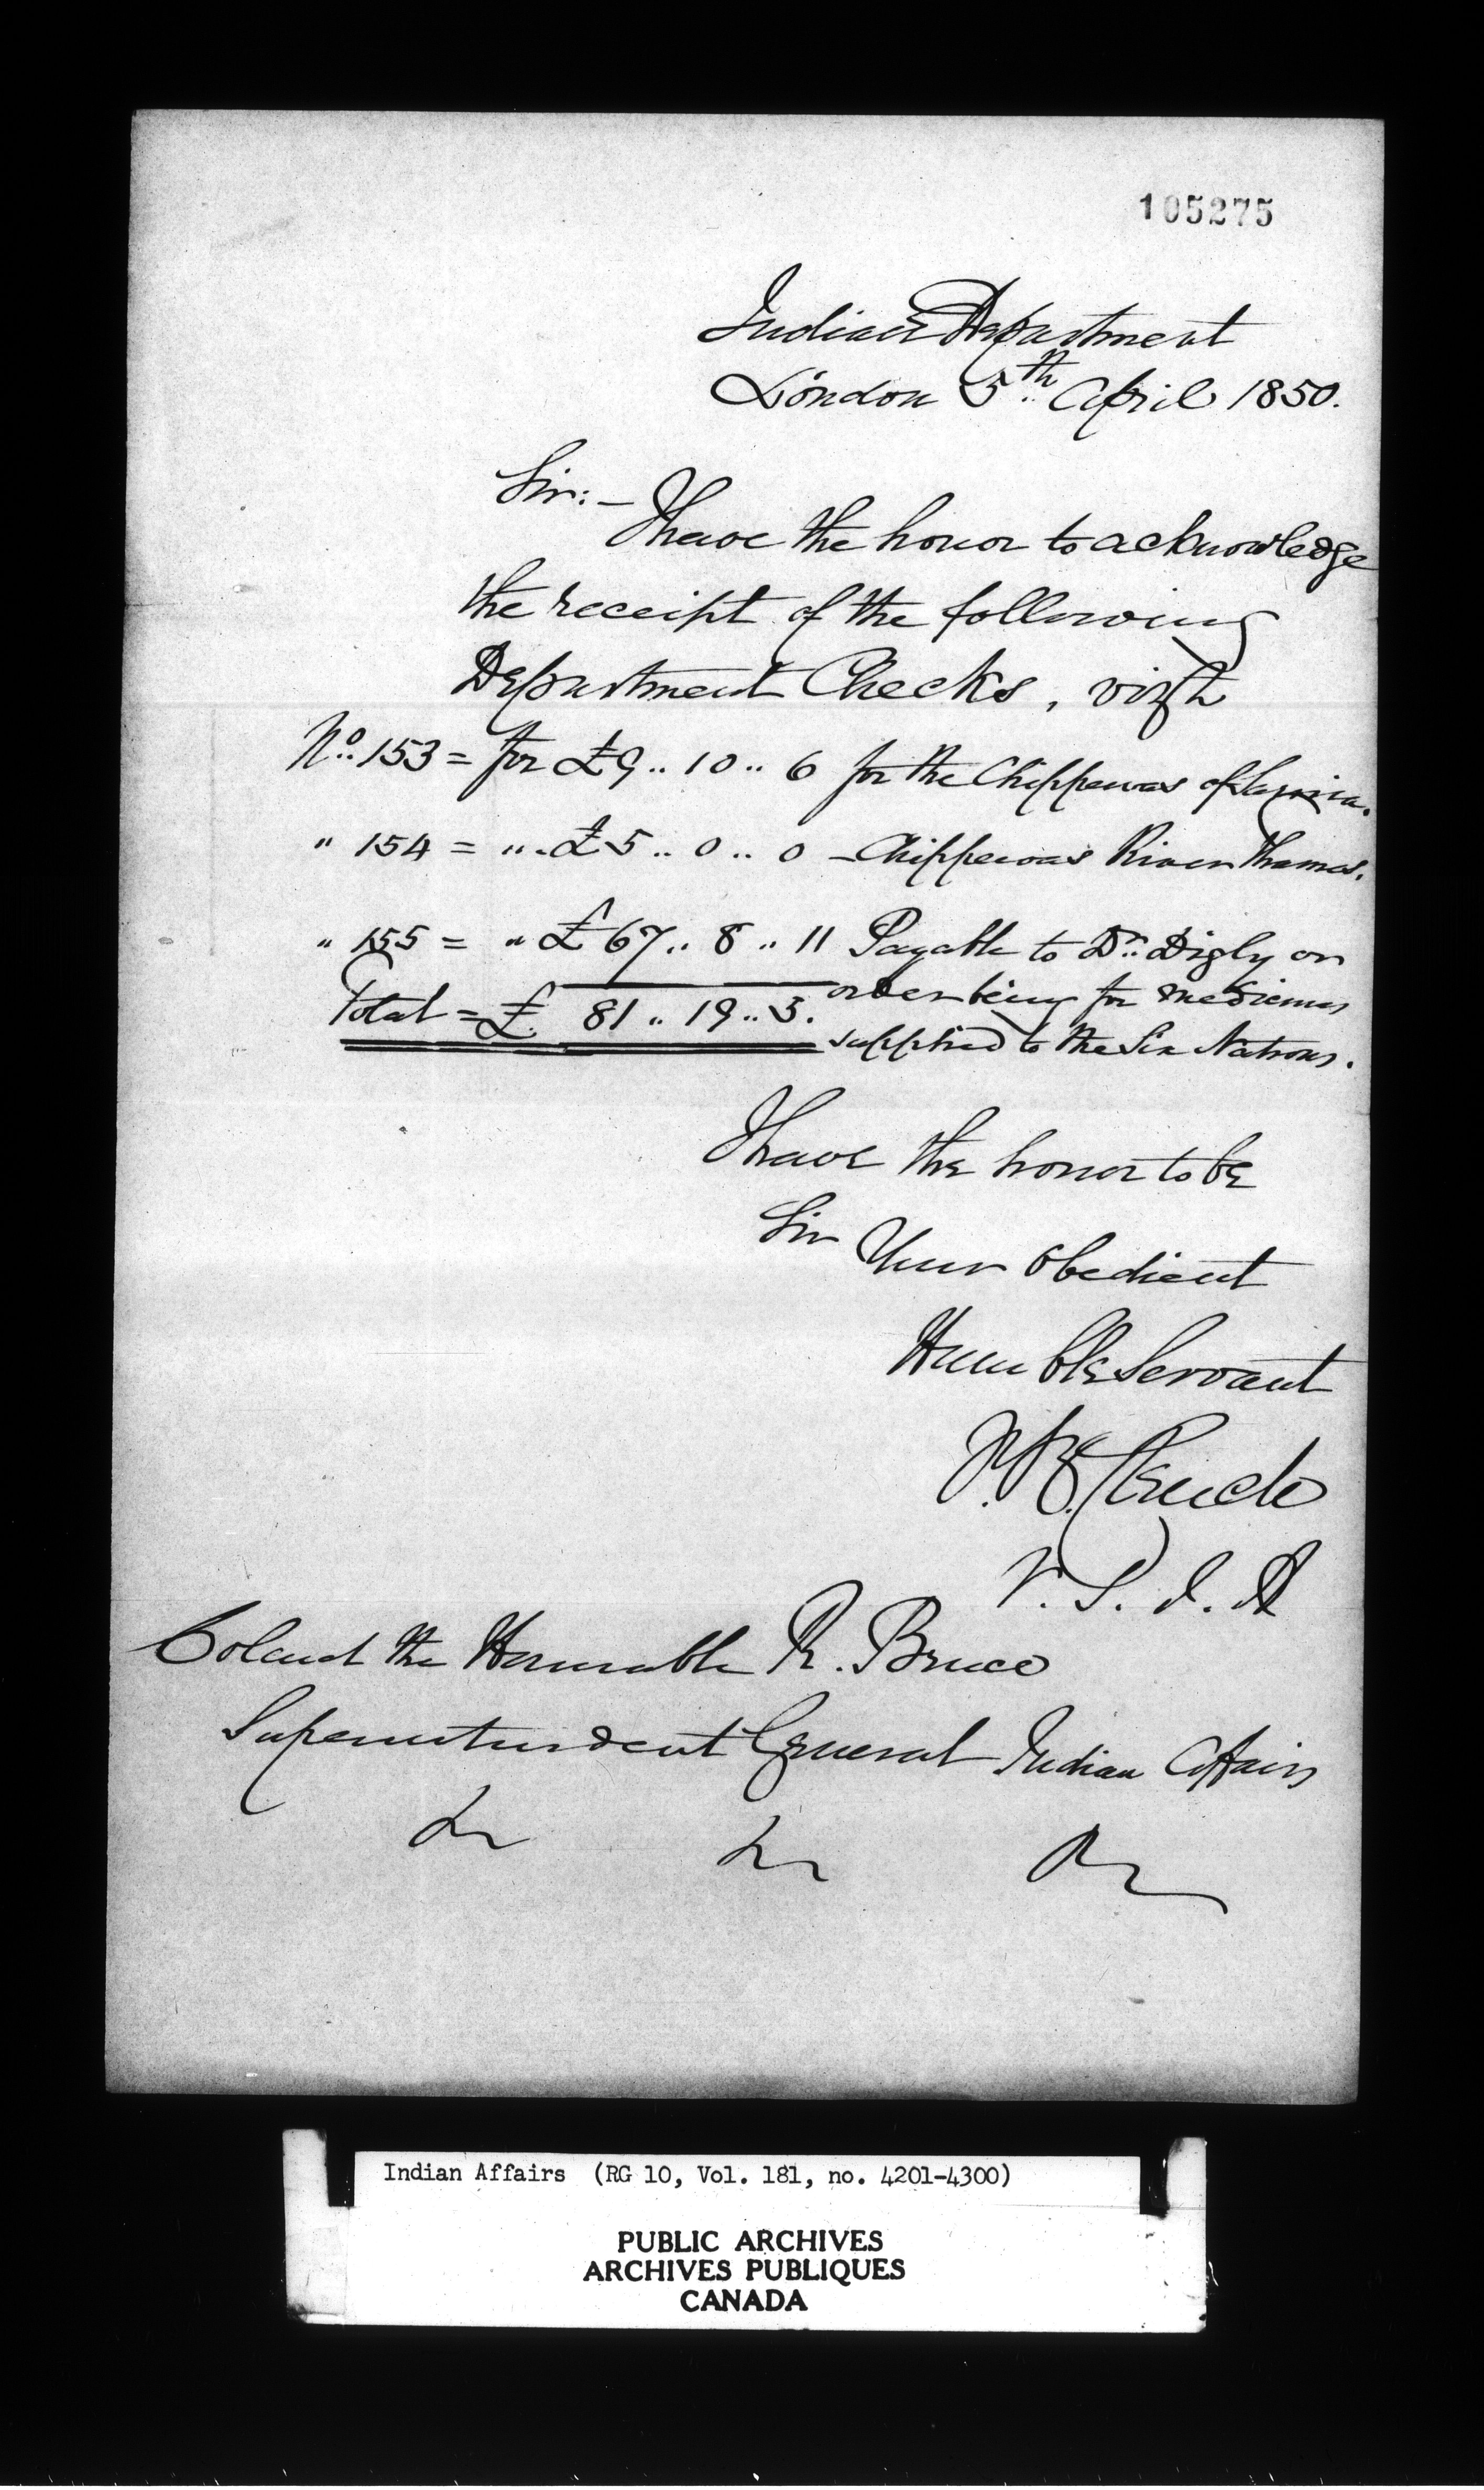 105275
Indian Department
London 5th April 1850.
Sir:—
I have the honor to acknowledge
the receipt of the following
Department Checks, vizt
No. 153 = for £9 .. 10 .. 6 for the Chippewas of Sarnia.
" 154 = " .. £5 .. 0 .. 0 — Chippewas River Thames.
" 155 = " £67 .. 8 .. 11 Payable to Dr. Digby or
order being for medicines
Total = £ 81 .. 19 .. 5.
supplied to the Six Nations.
I have the honor to be
Sir
Your Obedient
Humble Servant
J. B. Clench
V. S. I. A
Colonel the Honorable R. Bruce
Superintendent General Indian Affairs
&c &c &c
Indian Affairs (RG 10, Vol. 181, no. 4201-4300)
PUBLIC ARCHIVES
ARCHIVES PUBLIQUES
CANADA